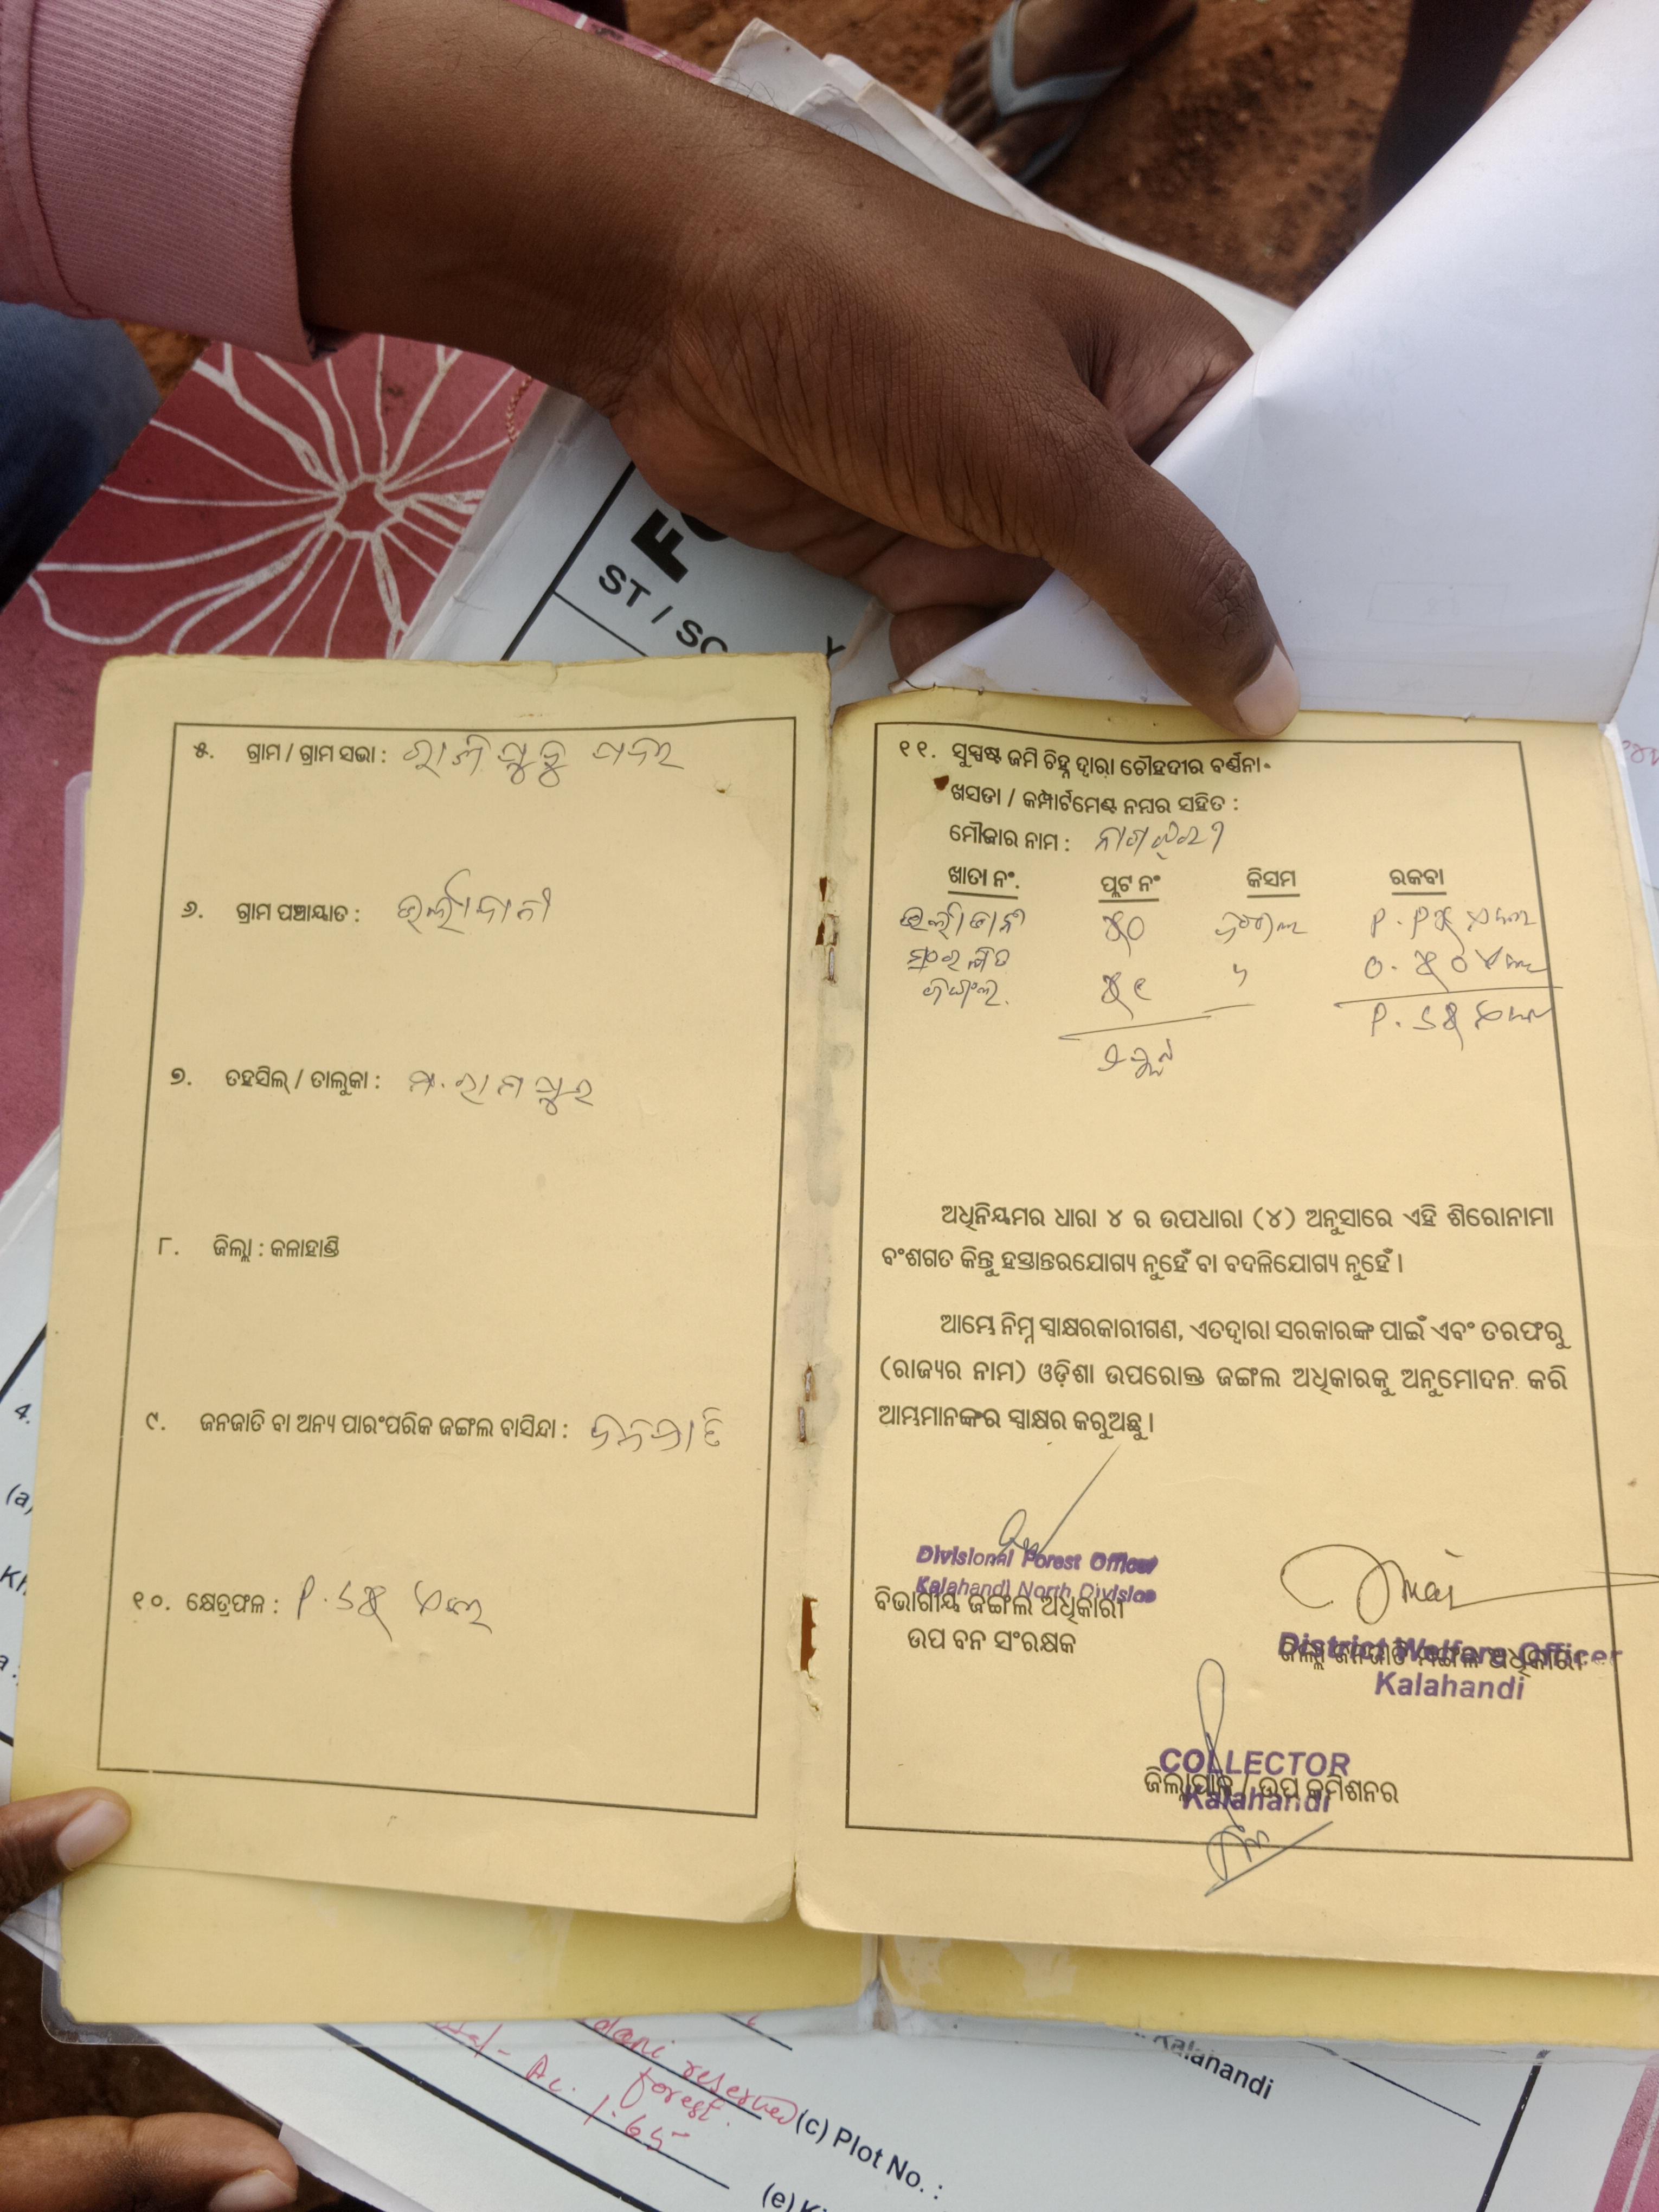 ST / SC
୫. ଗ୍ରାମ / ଗ୍ରାମ ସଭା :
୬. ଗ୍ରାମ ପଞ୍ଚାୟାତ :
୭. ତହସିଲ୍ / ତାଲୁକା : ମ. ରାମପୁର
୮. ଜିଲ୍ଲା : କଳାହାଣ୍ଡି
୯. ଜନଜାତି ବା ଅନ୍ୟ ପାରଂପରିକ ଜଙ୍ଗଲ ବାସିନ୍ଦା : ଜନଜାତି
୧୦. କ୍ଷେତ୍ରଫଳ : ୧.୬୫ ଏକର
୧୧. ସୁସ୍ପଷ୍ଟ ଜମି ଚିହ୍ନ ଦ୍ୱାରା ଚୌହଦୀର ବର୍ଣ୍ଣନା
ଖସଡା / କମ୍ପାର୍ଟମେଣ୍ଟ ନମ୍ବର ସହିତ :
ମୌଜାର ନାମ :
ଖାତା ନଂ. ପ୍ଲଟ ନଂ କିସମ ରକବା
୫୦ ଜଙ୍ଗଲ ୧.୧୫ ଏକର
୫୧ " ୦.୫୦ ଏକର
ଜଙ୍ଗଲ
୧.୬୫ ଏକର
ଅଧିନିୟମର ଧାରା ୪ ର ଉପଧାରା (୪) ଅନୁସାରେ ଏହି ଶିରୋନାମା
ବଂଶଗତ କିନ୍ତୁ ହସ୍ତାନ୍ତରଯୋଗ୍ୟ ନୁହେଁ ବା ବଦଳିଯୋଗ୍ୟ ନୁହେଁ ।
ଆମ୍ଭେ ନିମ୍ନ ସ୍ୱାକ୍ଷରକାରୀଗଣ, ଏତଦ୍ୱାରା ସରକାରଙ୍କ ପାଇଁ ଏବଂ ତରଫରୁ
(ରାଜ୍ୟର ନାମ) ଓଡ଼ିଶା ଉପରୋକ୍ତ ଜଙ୍ଗଲ ଅଧିକାରକୁ ଅନୁମୋଦନ କରି
ଆମ୍ଭମାନଙ୍କର ସ୍ୱାକ୍ଷର କରୁଅଛୁ ।
Divisional Forest Officer
Kalahandi North Division
ବିଭାଗୀୟ ଜଙ୍ଗଲ ଅଧିକାରୀ
ଉପ ବନ ସଂରକ୍ଷକ
District Welfare Officer
ଜିଲ୍ଲା ଜନଜାତି ମଙ୍ଗଳ ଅଧିକାରୀ
Kalahandi
COLLECTOR
ଜିଲ୍ଲାପାଳ / ଉପ କମିଶନର
Kalahandi
4.
(a)
dani reserved
forest.
Ac. 1.65
(c) Plot No. :
Kalahandi
(e)